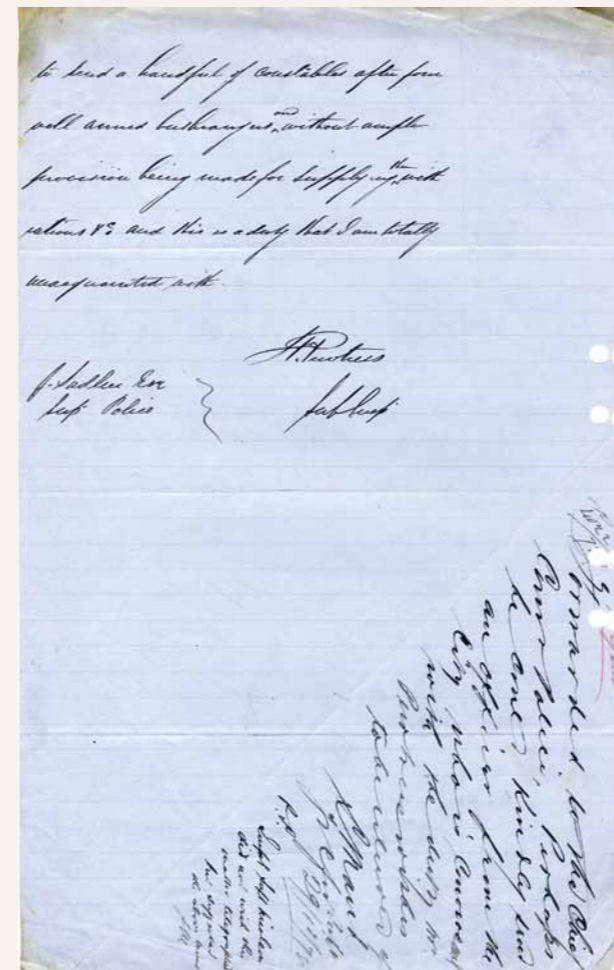 to send a handful of constables after four
well armed bushrangers and without ample
provision being made for supplying them with
rations &c and this is a duty that I am totally
unacquainted with.
H. Pewtress
Sub Supt
J. Sadleir Esq
Supt Police
Forwarded to the Chief
Commr Police, Perhaps
he could kindly send
an officer from the
City who is conversant
with the duty Mr
Pewtress wishes
to be relieved of
29/10/78
P.S.